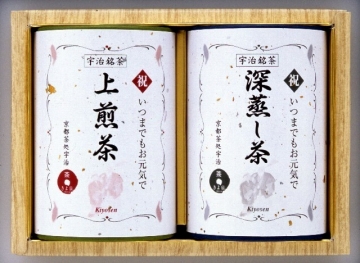 宇治銘茶
祝
いつまでもお元気で
上煎茶
京都茶処宇治
Kiyosen
宇治銘茶
祝
いつまでもお元気で
深蒸し茶
京都茶処宇治
Kiyosen